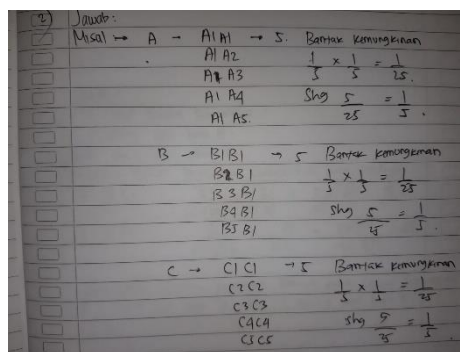 2) Jawab :
Misal → A → A1 A1 → 5. Bantak kemungkinan
A1 A2 1/5 × 1/5 = 1/25.
A1 A3
A1 A4 Shg 5/25 = 1/5.
A1 A5.
B → B1 B1 → 5 Bantak kemungkinan
B2 B1 1/5 × 1/5 = 1/25
B3 B1
B4 B1 shg 5/25 = 1/5.
B5 B1
C → C1 C1 → 5 Bantak kemungkinan
C2 C2 1/5 × 1/5 = 1/25
C3 C3
C4 C4 shg 5/25 = 1/5
C5 C5